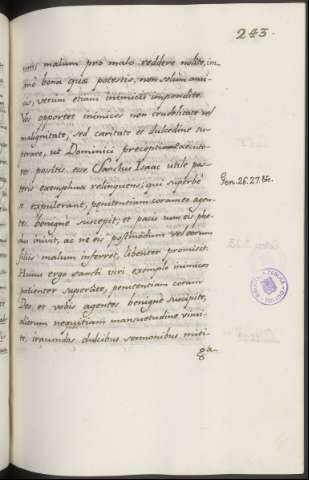 243.
mini malum pro malo reddere nolite, im-
mò bona quæ potestis, non solùm ami-
cis, verum etiam inimicis impendite.
Vos opportet inimicos non crudelitate vel
malignitate, sed caritate et dulcedine su-
perare, ut Dominici præceptiam executo-
res possitis esse Sanctus Isaac utile pos-
teris exemplum relinquens; qui superbè
expulerant, penitentiam coram eo agen-
tes benignè suscepit; et pacis cum eis phe-
du inivit, ac ne eis postmodum ulterum
plius malum inferret, libenter promisit.
Huius ergo sancti viri exemplo inimicos
patienter superate, penitentiam coram
Deo, et vobis agentes benignè suscipite,
aliorum nequitiam mansuetudine vinci-
te, iracundos dulcibus sermonibus miti-
ga-
Gen. 26. 27. &c.